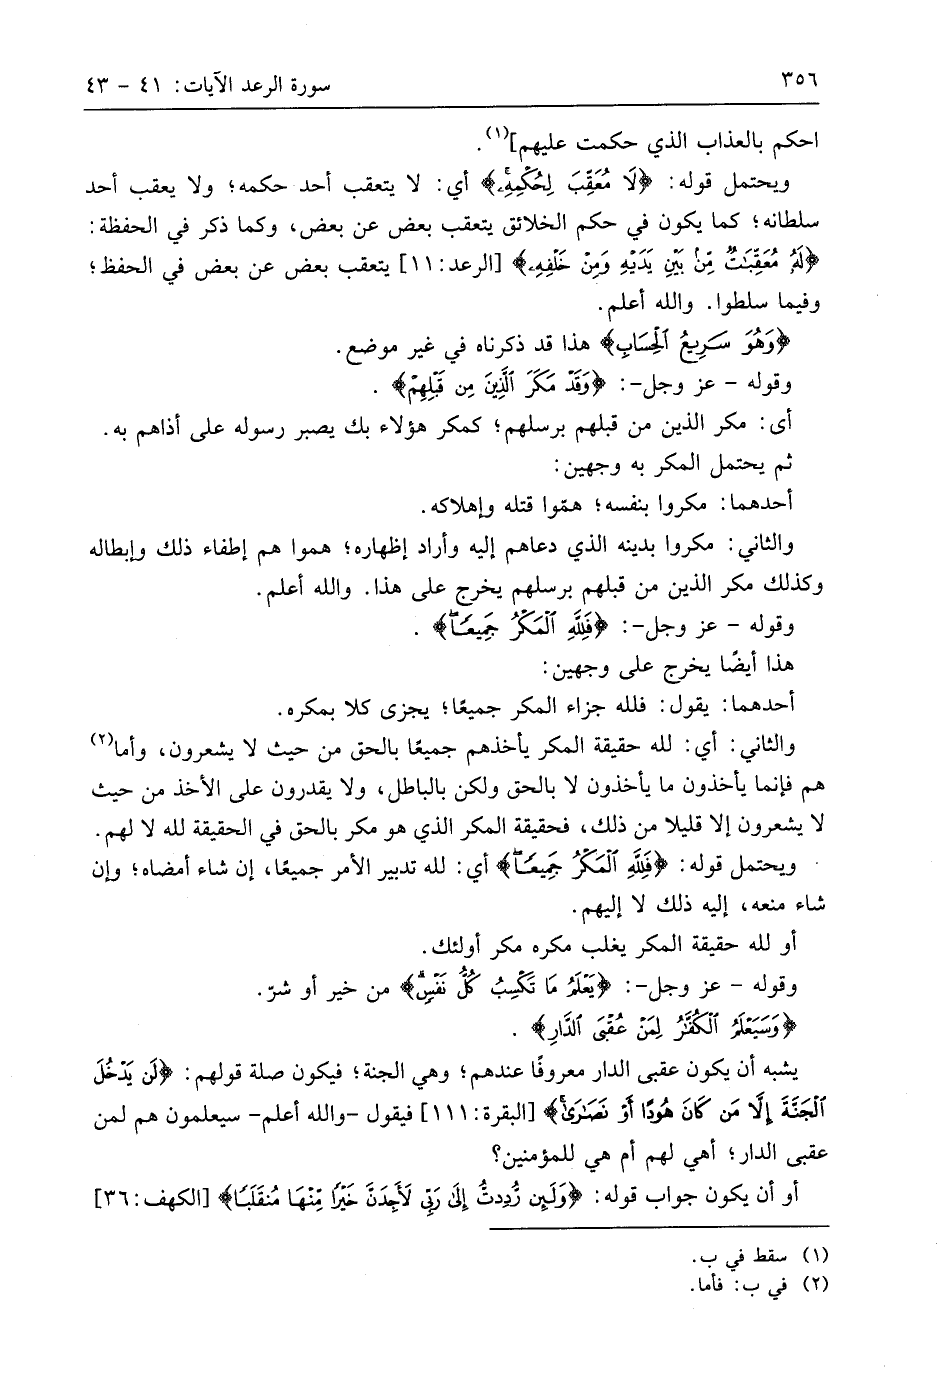 ٣٥٦ سورة الرعد الآيات: ٤١ - ٤٣
احكم بالعذاب الذي حكمت عليهم](١).
ويحتمل قوله: ﴿لَا مُعَقِّبَ لِحُكْمِهِۦ﴾ أي: لا يتعقب أحد حكمه؛ ولا يعقب أحد
سلطانه؛ كما يكون في حكم الخلائق يتعقب بعض عن بعض، وكما ذكر في الحفظة:
﴿لَهُ مُعَقِّبَٰتٌ مِّنۢ بَيْنِ يَدَيْهِ وَمِنْ خَلْفِهِۦ﴾ [الرعد: ١١] يتعقب بعض عن بعض في الحفظ؛
وفيما سلطوا. والله أعلم.
﴿وَهُوَ سَرِيعُ ٱلْحِسَابِ﴾ هذا قد ذكرناه في غير موضع.
وقوله - عز وجل-: ﴿وَقَدْ مَكَرَ ٱلَّذِينَ مِن قَبْلِهِمْ﴾ .
أى: مكر الذين من قبلهم برسلهم؛ كمكر هؤلاء بك يصبر رسوله على أذاهم به.
ثم يحتمل المكر به وجهين:
أحدهما: مكروا بنفسه؛ همّوا قتله وإهلاكه.
والثاني: مكروا بدينه الذي دعاهم إليه وأراد إظهاره؛ هموا هم إطفاء ذلك وإبطاله
وكذلك مكر الذين من قبلهم برسلهم يخرج على هذا. والله أعلم.
وقوله - عز وجل-: ﴿فَلِلَّهِ ٱلْمَكْرُ جَمِيعًا﴾ .
هذا أيضًا يخرج على وجهين:
أحدهما: يقول: فلله جزاء المكر جميعًا؛ يجزى كلا بمكره.
والثاني: أي: لله حقيقة المكر يأخذهم جميعًا بالحق من حيث لا يشعرون، وأما(٢)
هم فإنما يأخذون ما يأخذون لا بالحق ولكن بالباطل، ولا يقدرون على الأخذ من حيث
لا يشعرون إلا قليلا من ذلك، فحقيقة المكر الذي هو مكر بالحق في الحقيقة لله لا لهم.
ويحتمل قوله: ﴿فَلِلَّهِ ٱلْمَكْرُ جَمِيعًا﴾ أي: لله تدبير الأمر جميعًا، إن شاء أمضاه؛ وإن
شاء منعه، إليه ذلك لا إليهم.
أو لله حقيقة المكر يغلب مكره مكر أولئك.
وقوله - عز وجل-: ﴿يَعْلَمُ مَا تَكْسِبُ كُلُّ نَفْسٍ﴾ من خير أو شرّ.
﴿وَسَيَعْلَمُ ٱلْكُفَّٰرُ لِمَنْ عُقْبَى ٱلدَّارِ﴾ .
يشبه أن يكون عقبى الدار معروفًا عندهم؛ وهي الجنة؛ فيكون صلة قولهم: ﴿لَن يَدْخُلَ
ٱلْجَنَّةَ إِلَّا مَن كَانَ هُودًا أَوْ نَصَٰرَىٰ﴾ [البقرة: ١١١] فيقول -والله أعلم- سيعلمون هم لمن
عقبى الدار؛ أهي لهم أم هي للمؤمنين؟
أو أن يكون جواب قوله: ﴿وَلَئِن رُّدِدتُّ إِلَىٰ رَبِّي لَأَجِدَنَّ خَيْرًا مِّنْهَا مُنقَلَبًا﴾ [الكهف: ٣٦]
(١) سقط في ب.
(٢) في ب: فأما.